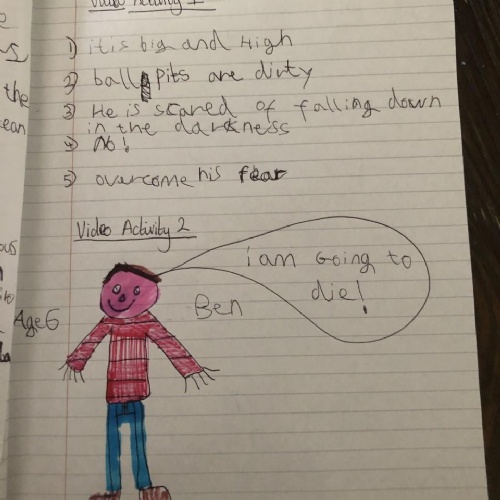 Video Activity 1
1) it is big and High
2) ball pits are dirty
3) He is scared of falling down
in the darkness
4) No!
5) overcome his fear
Video Activity 2
i am Going to
die!
Ben
Age 6
the
ean